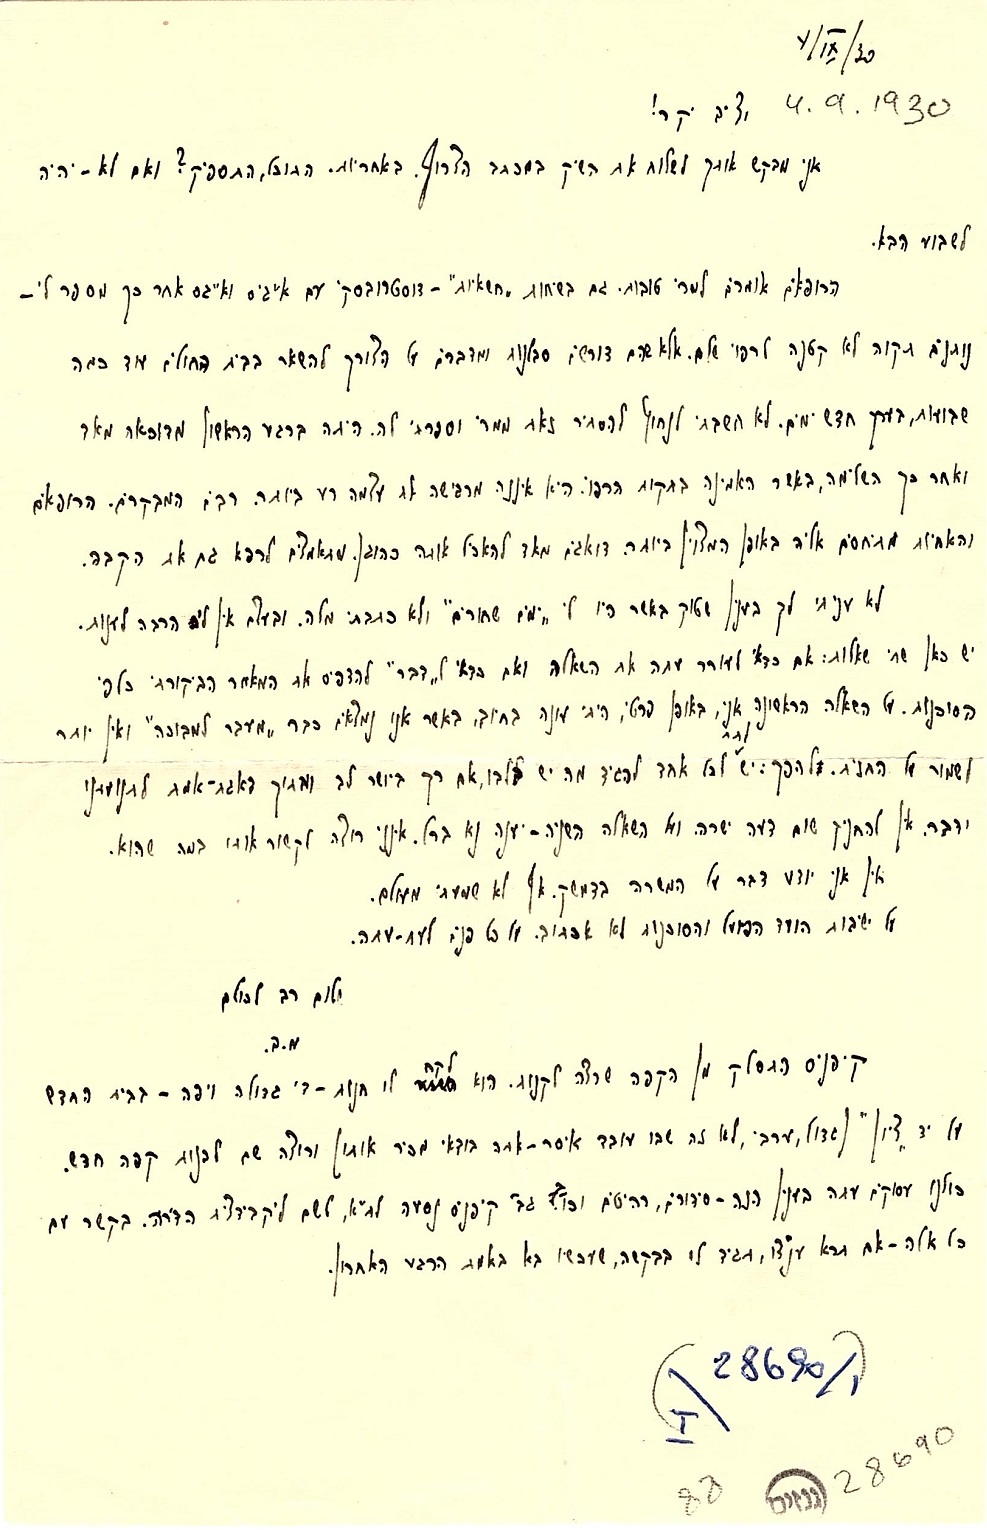 4/IX/30
4.9.1930
יציב יקר!
אני מבקש אותך לשלוח את השיק במכתב הצרוף. באחריות. התוכל, התספיק? ואם לא – יהיה
לשבוע הבא.
הרופאים אומרים למרי טובות. גם בשיחות "חשאיות" – דוסטרובסקי עם אייגיס ואייגס אחר כך מספר לי –
נותנים תקוה לא קטנה לרפוי שלם. אלא שהם דורשים סבלנות ומדברים על הצורך להשאר בבית החולים עוד כמה
שבועות, בערך חדש ימים. לא חשבתי לנחוץ להסתיר זאת ממרי וספרתי לה. היתה ברגע הראשון מדוכאה מאד
ואחר כך השלימה, באשר האמינה בתקות הרפוי. היא איננה מרגישה את עצמה רע ביותר. רבים המבקרים. הרופאים
והאחיות מתיחסים אליה באופן המצוין ביותר. דואגים מאד להאכיל אותה כהוגן. מתאמצים לרפא גם את הקבה.
לא עניתי לך בענין שטוק באשר היו לי "ימים שחורים" ולא כתבתי מלה. ובעצם אין לי הרבה לענות.
יש כאן שתי שאלות: אם כדאי לעורר עתה את השאלה ואם כדאי ל"דבר" להדפיס את המאמר הביקורתי כלפי
הסוכנות. על השאלה הראשונה אני, באופן פרטי, הייתי עונה בחיוב, באשר אנו נמצאים כבר "מעבר למבוכה" ואין יותר
לשמור על החזית. להפך: יש לתת לכל אחד להגיד מה יש בלבו, אם רק ביושר לב ומתוך דאגת-אמת לתנועתנו
ידבר. אין להחניק שום דעה ישרה. ועל השאלה השניה – יענה נא ברל. אינני רוצה לקשור אותו במה שהוא.
אין אני יודע דבר על המשרה בדמשק. אף לא שמעתי מעולם.
על ישיבות הועד הפועל והסוכנות לא אכתוב. על כל פנים לעת-עתה.
שלום רב לכולם
מ.ב.
קיפניס הסתלק מן הקפה שרצה לקנות. הוא לקח לו חנות – די גדולה ויפה – בבית החדש
על יד "ציון" (גדול, ערבי, לא זה שבו עובד איסר – אתה בודאי מכיר אותו) ורוצה שם לבנות קפה חדש.
כולנו עסוקים עתה בענין הזה – סידורים, רהיטים וכו'. גב' קיפניס נסעה לת"א, לשם ליקבידצית הדירה. בקשר עם
כל אלה – אם תראה ענצו, תגיד לו בבקשה, שעכשיו בא באמת הרגע האחרון.
28690/י
I
28690
88
גנזים